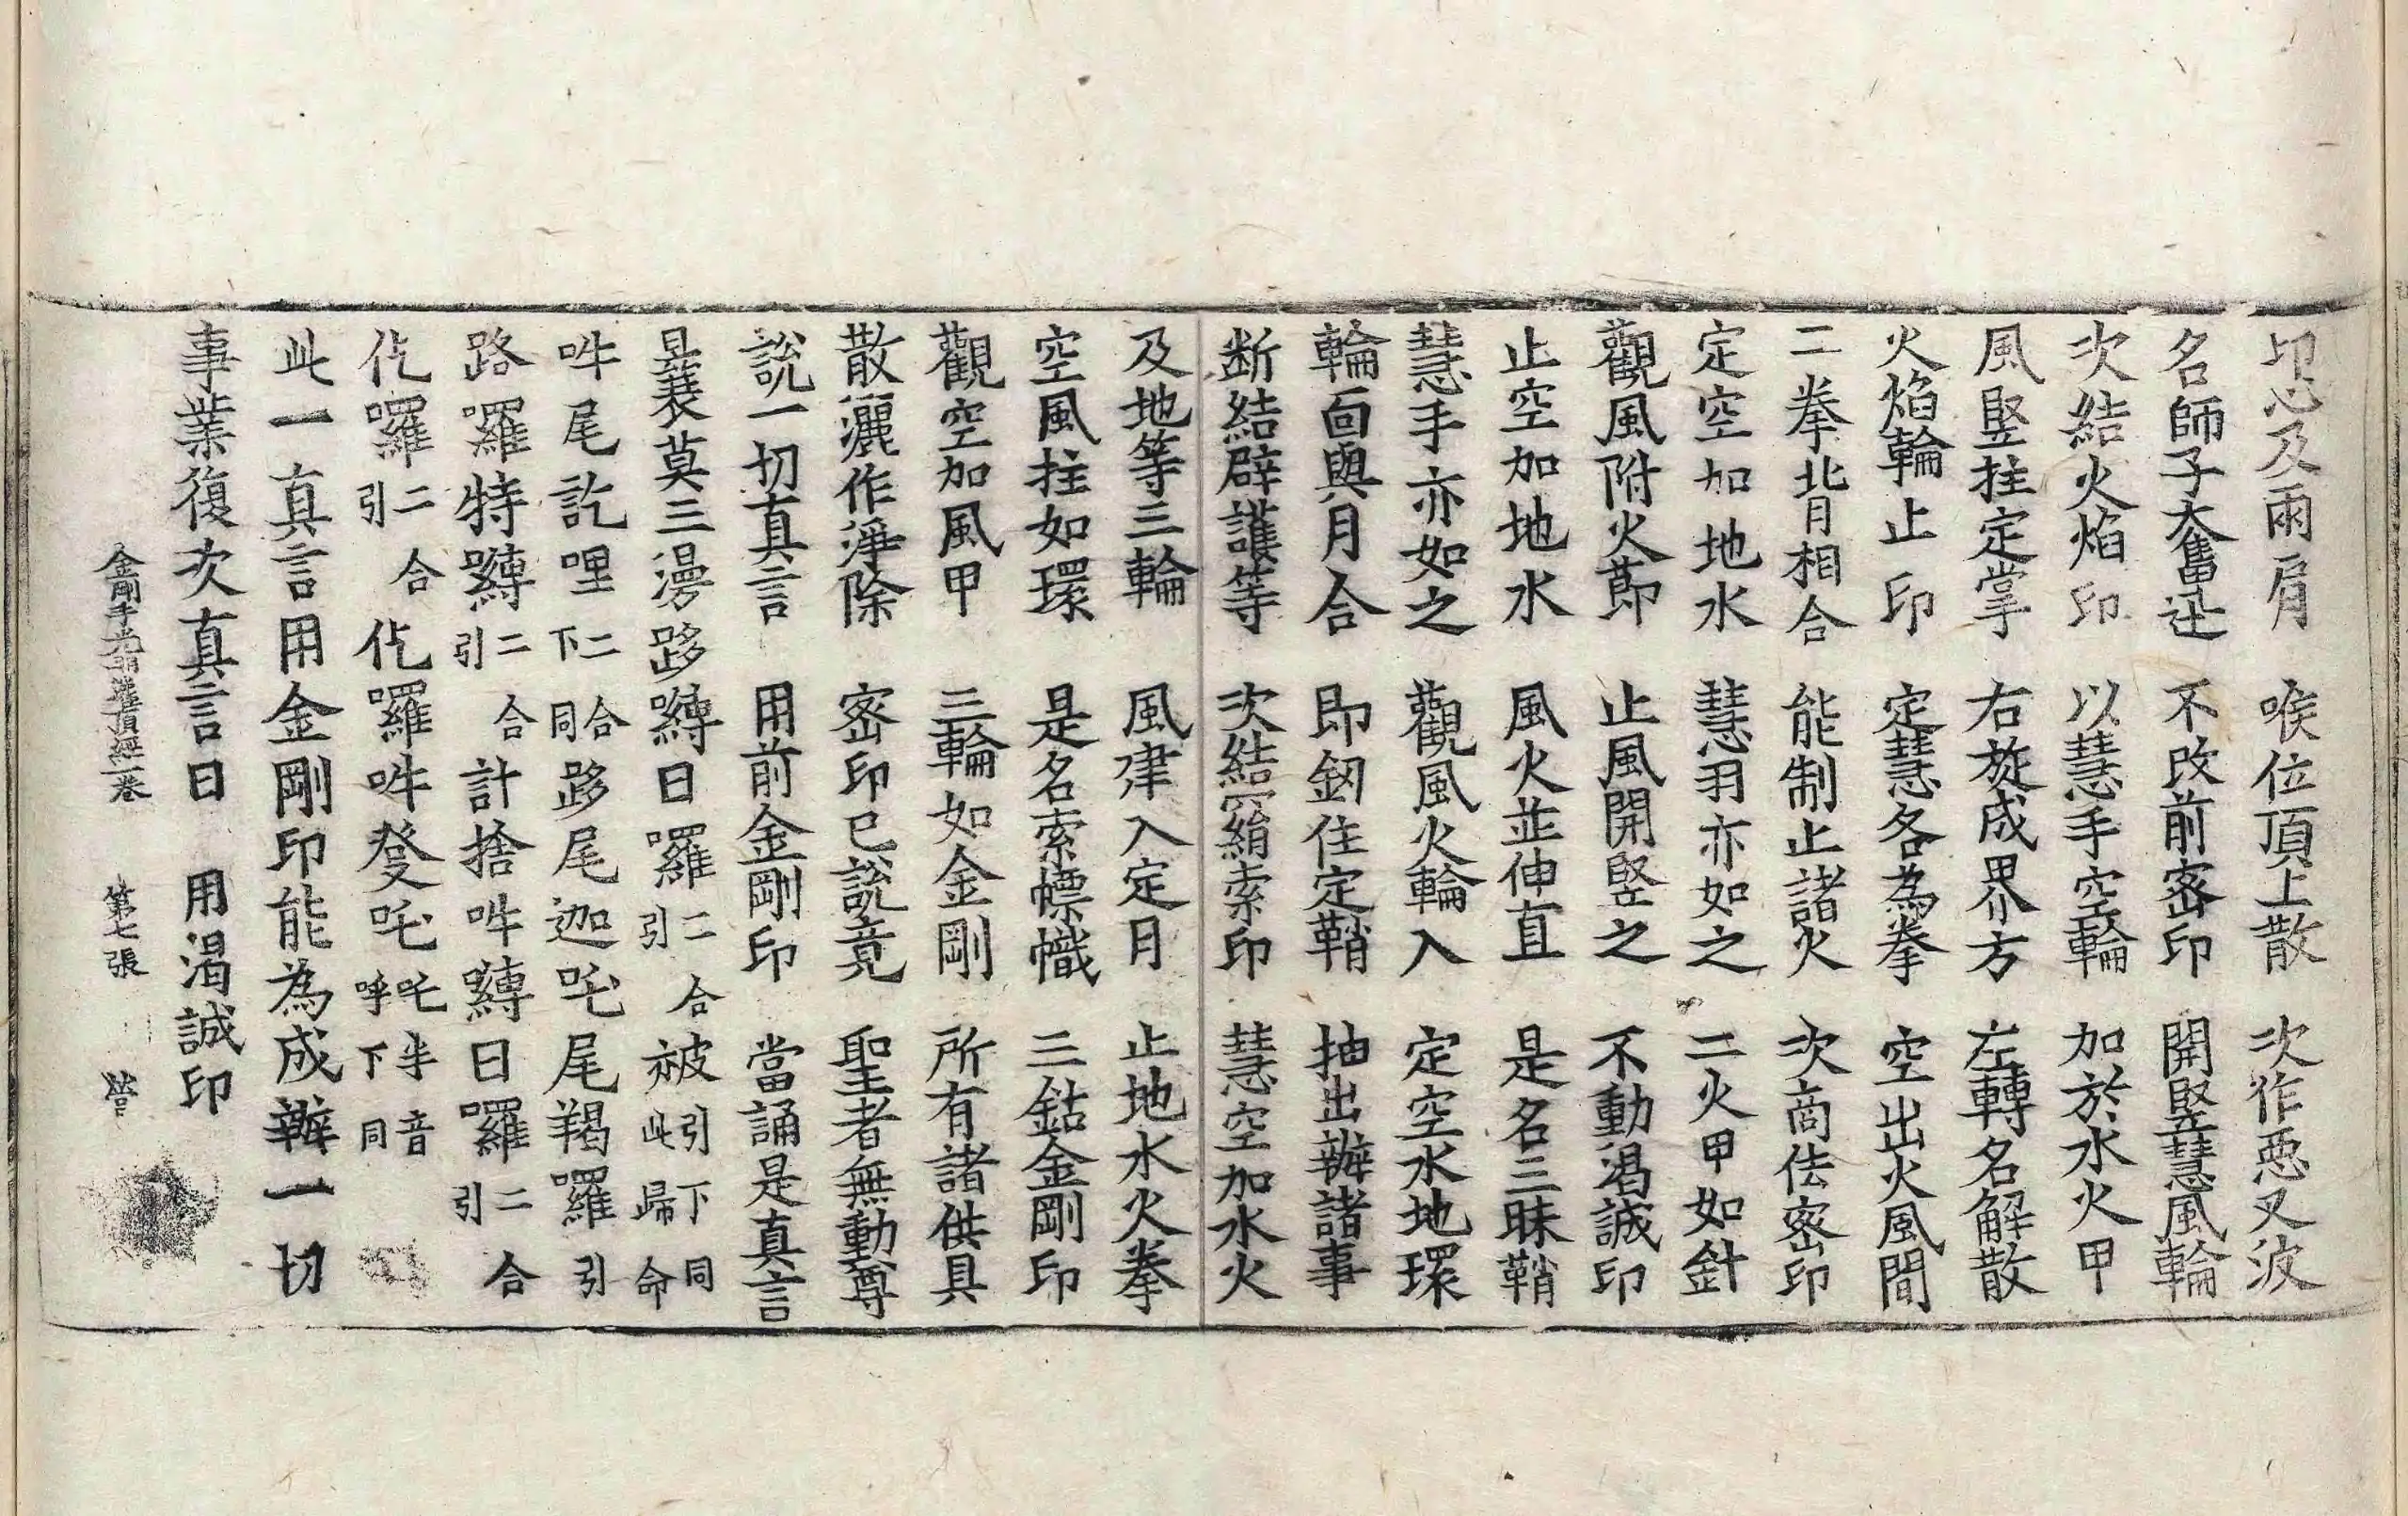 印心及兩肩　喉位頂上散　次作惡叉波
名師子大奮迅　不改前密印　開竪慧風輪
次結火焰印　以慧手空輪　加於水火甲
風竪拄定掌　右旋成界方　左轉名解散
火焰輪止印　定慧各為拳　空出火風間
二拳背相合　能制止諸火　次商佉密印
定空加地水　慧羽亦如之　二火甲如針
觀風附火節　止風開竪之　不動渴誠印
止空加地水　風火並伸直　是名三昧鞘
慧手亦如之　觀風火輪入　定空水地環
輪面與月合　即釰住定鞘　抽出辦諸事
断結辟護等　次結羂索印　慧空加水火
及地等三輪　風建入定月　止地水火拳
空風拄如環　是名索幖幟　三鈷金剛印
觀空加風甲　三輪如金剛　所有諸供具
散灑作淨除　密印已說竟　聖者無動尊
說一切真言　用前金剛印　當誦是真言
曩莫三漫跢嚩日囉二合引被引下同此歸命
吽尾訖哩二合下同跢尾迦吒尾羯囉引
路羅特嚩二合引計捨吽嚩日囉二合引
佉囉二合引佉囉吽發吒吒半音呼下同
此一真言用金剛印能為成辦一切
事業復次真言曰　用渴誠印
金剛手光明灌頂經一卷　第七張　營